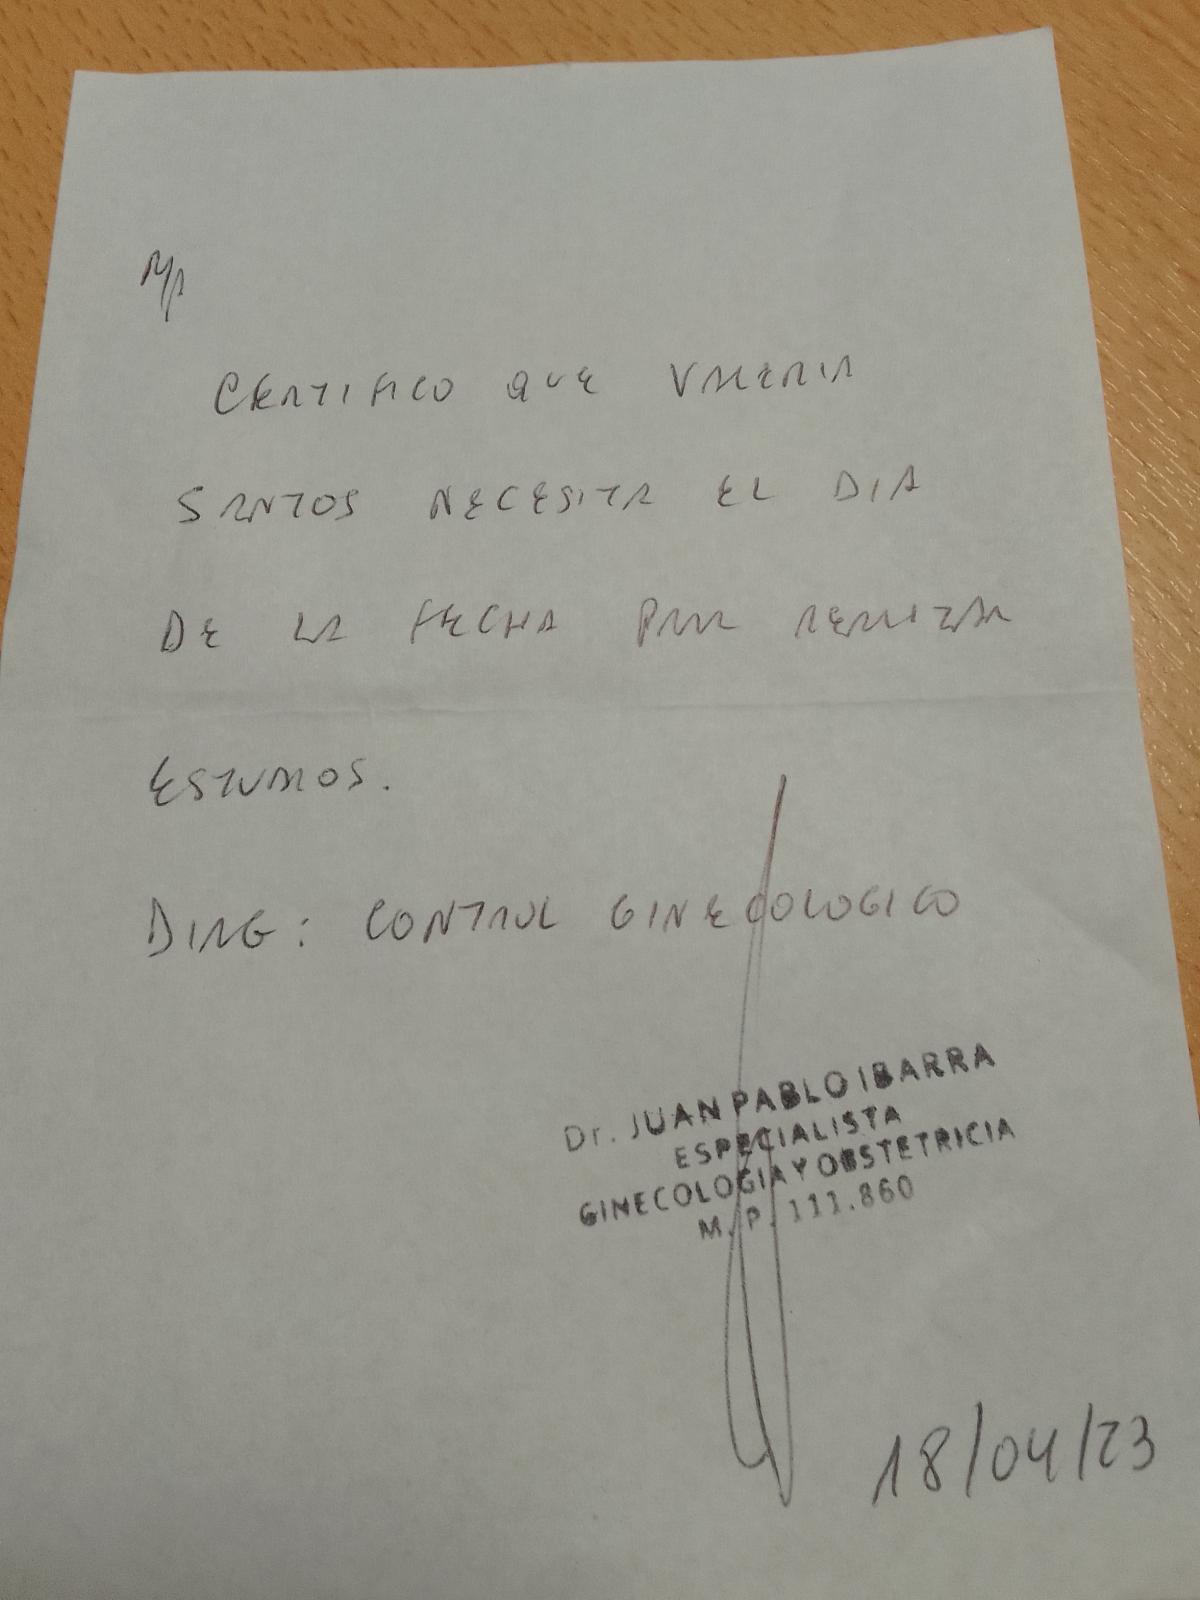 R/p
CERTIFICO QUE VALERIA
SANTOS NECESITA EL DIA
DE LA FECHA PARA REALIZAR
ESTUDIOS.
DIAG: CONTROL GINECOLOGICO
Dr. JUAN PABLO IBARRA
ESPECIALISTA
GINECOLOGIA Y OBSTETRICIA
M. P. 111.860
18/04/23